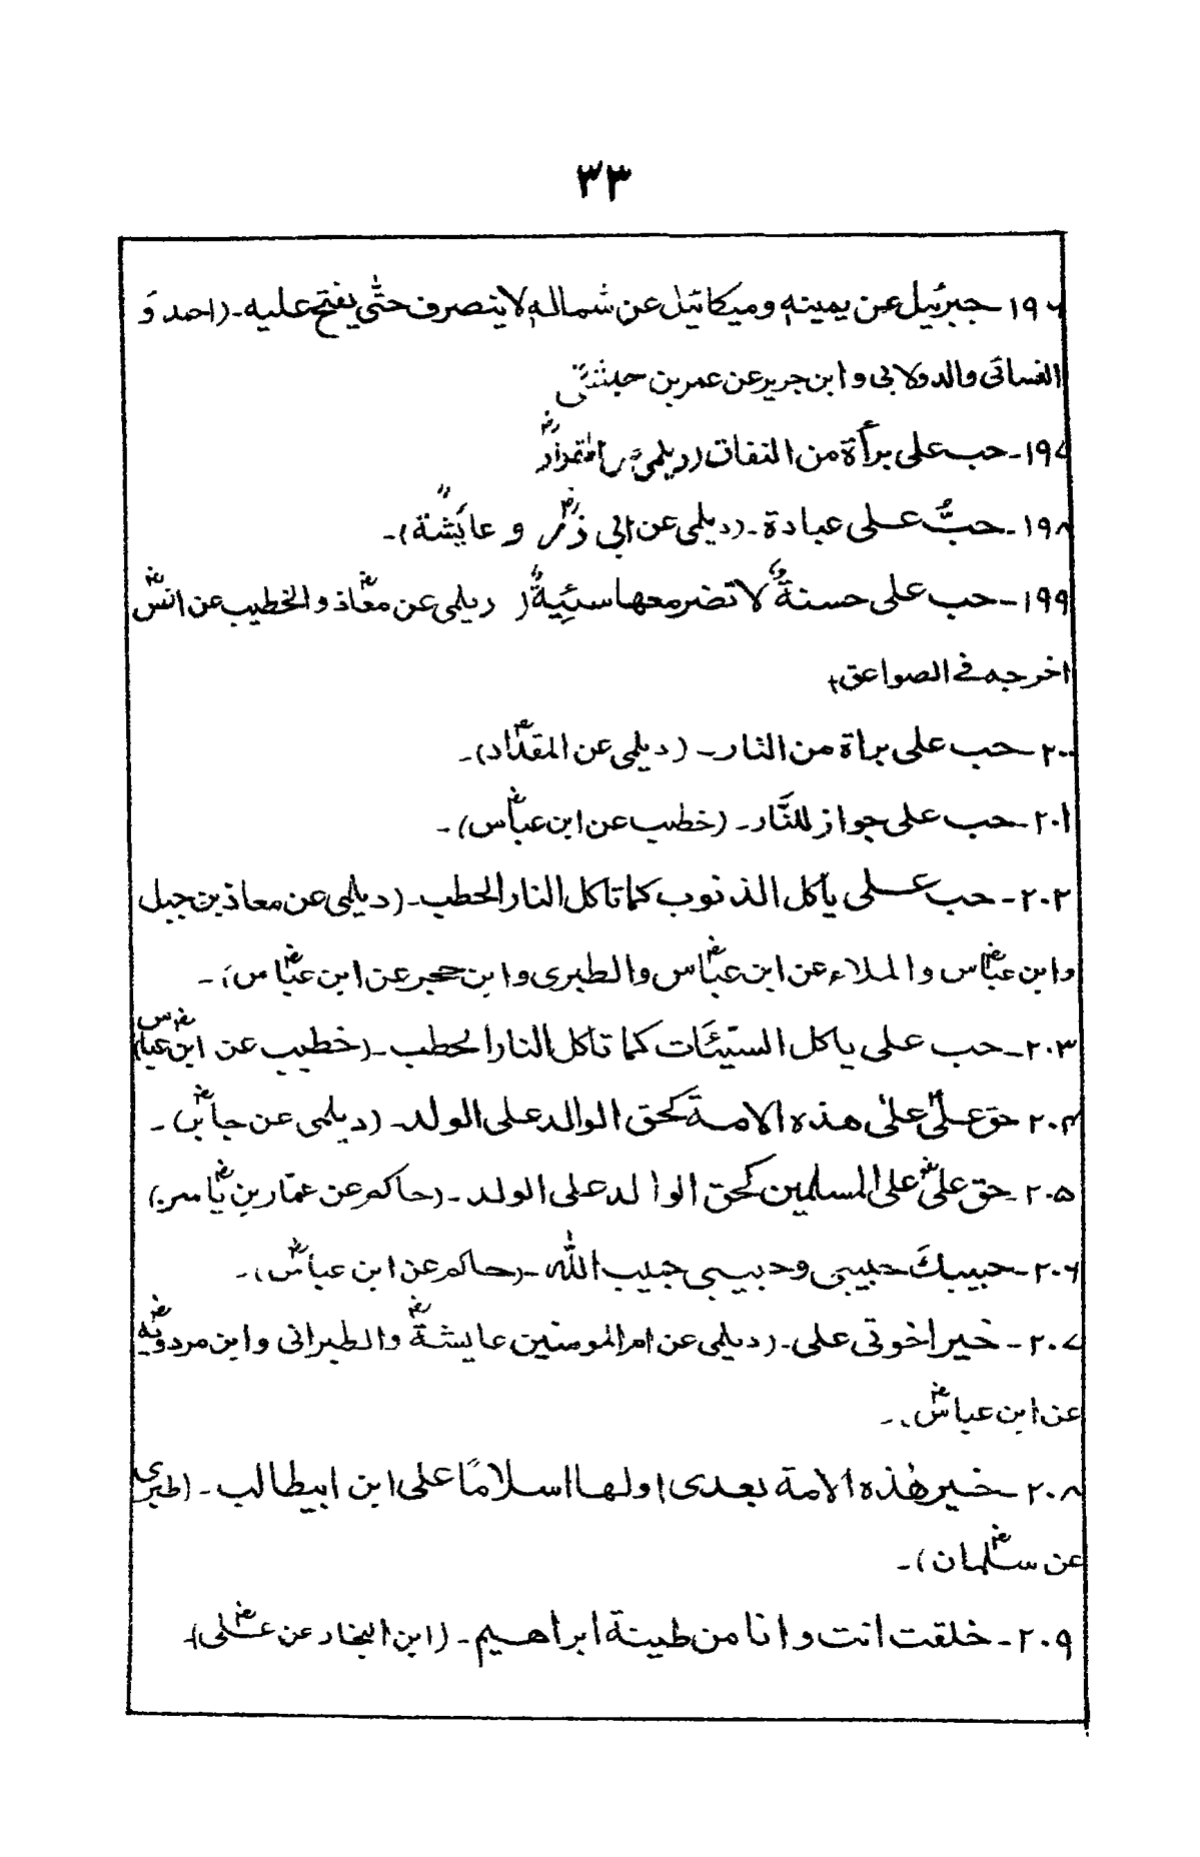 ٣٣
١٩٦ـ جبرئیل عن یمینہٖ و میکائیل عن شمالہٖ لا ینصرف حتّٰی یفتح علیہ۔ (احمد وَ
النسائی والدولابی و ابن جریر عن عمر بن
١٩٧ـ حب علی برأة من النفاق (دیلمی
١٩٨ـ حبُّ علی عبادة۔ (دیلمی عن ابی ذرؓ و عایٔشةؓ)۔
١٩٩ـ حب علی حسنةٌ لا تضر معها سیئِیةٌ ( دیلمی عن معاذؓ و الخطیب عن انسؓ
اخرجہ فی الصواعق
٢٠٠ـ حب علی براة من النار۔ (دیلمی عن المقدادؓ)۔
٢٠١ـ حب علی جواز للنَّار۔ (خطیب عن ابن عباسؓ)۔
٢٠٢ـ حب علی یاکل الذنوب کما تاکل النار الحطب۔ (دیلمی عن معاذ بن جبل
و ابن عباسؓ و الملاء عن ابن عباسؓ والطبری و ابن حجر عن ابن عباسؓ)۔
٢٠٣ـ حب علی یاکل السیّئَات کما تاکل النار الحطب۔ (خطیب عن ابن عباسؓ)
٢٠۴ حق علیؓ علیٰ هذه الامة کحق الوالد علی الولد۔ (دیلمی عن جابرؓ)۔
٢٠۵ـ حق علیؓ علی المسلمین کحق الوالد علی الولد۔ (حاکم عن عمّار بن یاسرؓ)
٢٠۶ـ حبیبكَ حبیبی و حبیبی حبیب اللّٰه۔ (حاکم عن ابن عباسؓ)۔
٢٠٧ـ خیر اخوتی علی۔ (دیلمی عن ام المومنین عایشةؓ و الطبرانی و ابن مردویهؓ
عن ابن عباسؓ)۔
٢٠٨ـ خیر هٰذه الامة بعدی اولها اسلامًا علی ابن ابیطالب۔ (طبری
عن سلمانؓ)۔
٢٠٩ـ خلقت انت و انا من طینة ابراهیم۔ (ابن النجار عن علیؓ)۔